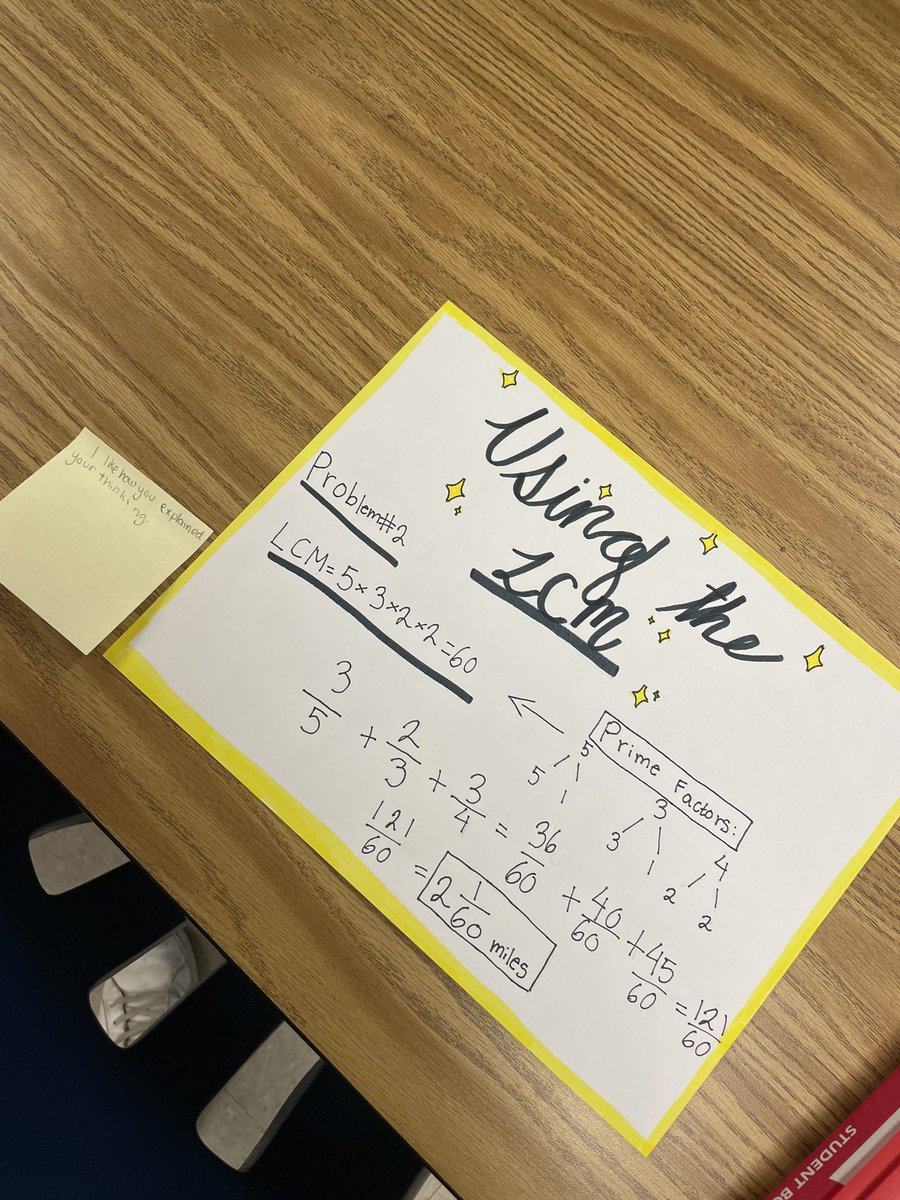 Using the
LCM
Problem#2
LCM=5×3×2×2=60
Prime Factors:
5
5 1
3
3 1
4
2 2
3/5 + 2/3 + 3/4 = 36/60 + 40/60 + 45/60 = 121/60
121/60 = 2 1/60 miles
I like how you explained
your thinking.
STUDENT BO